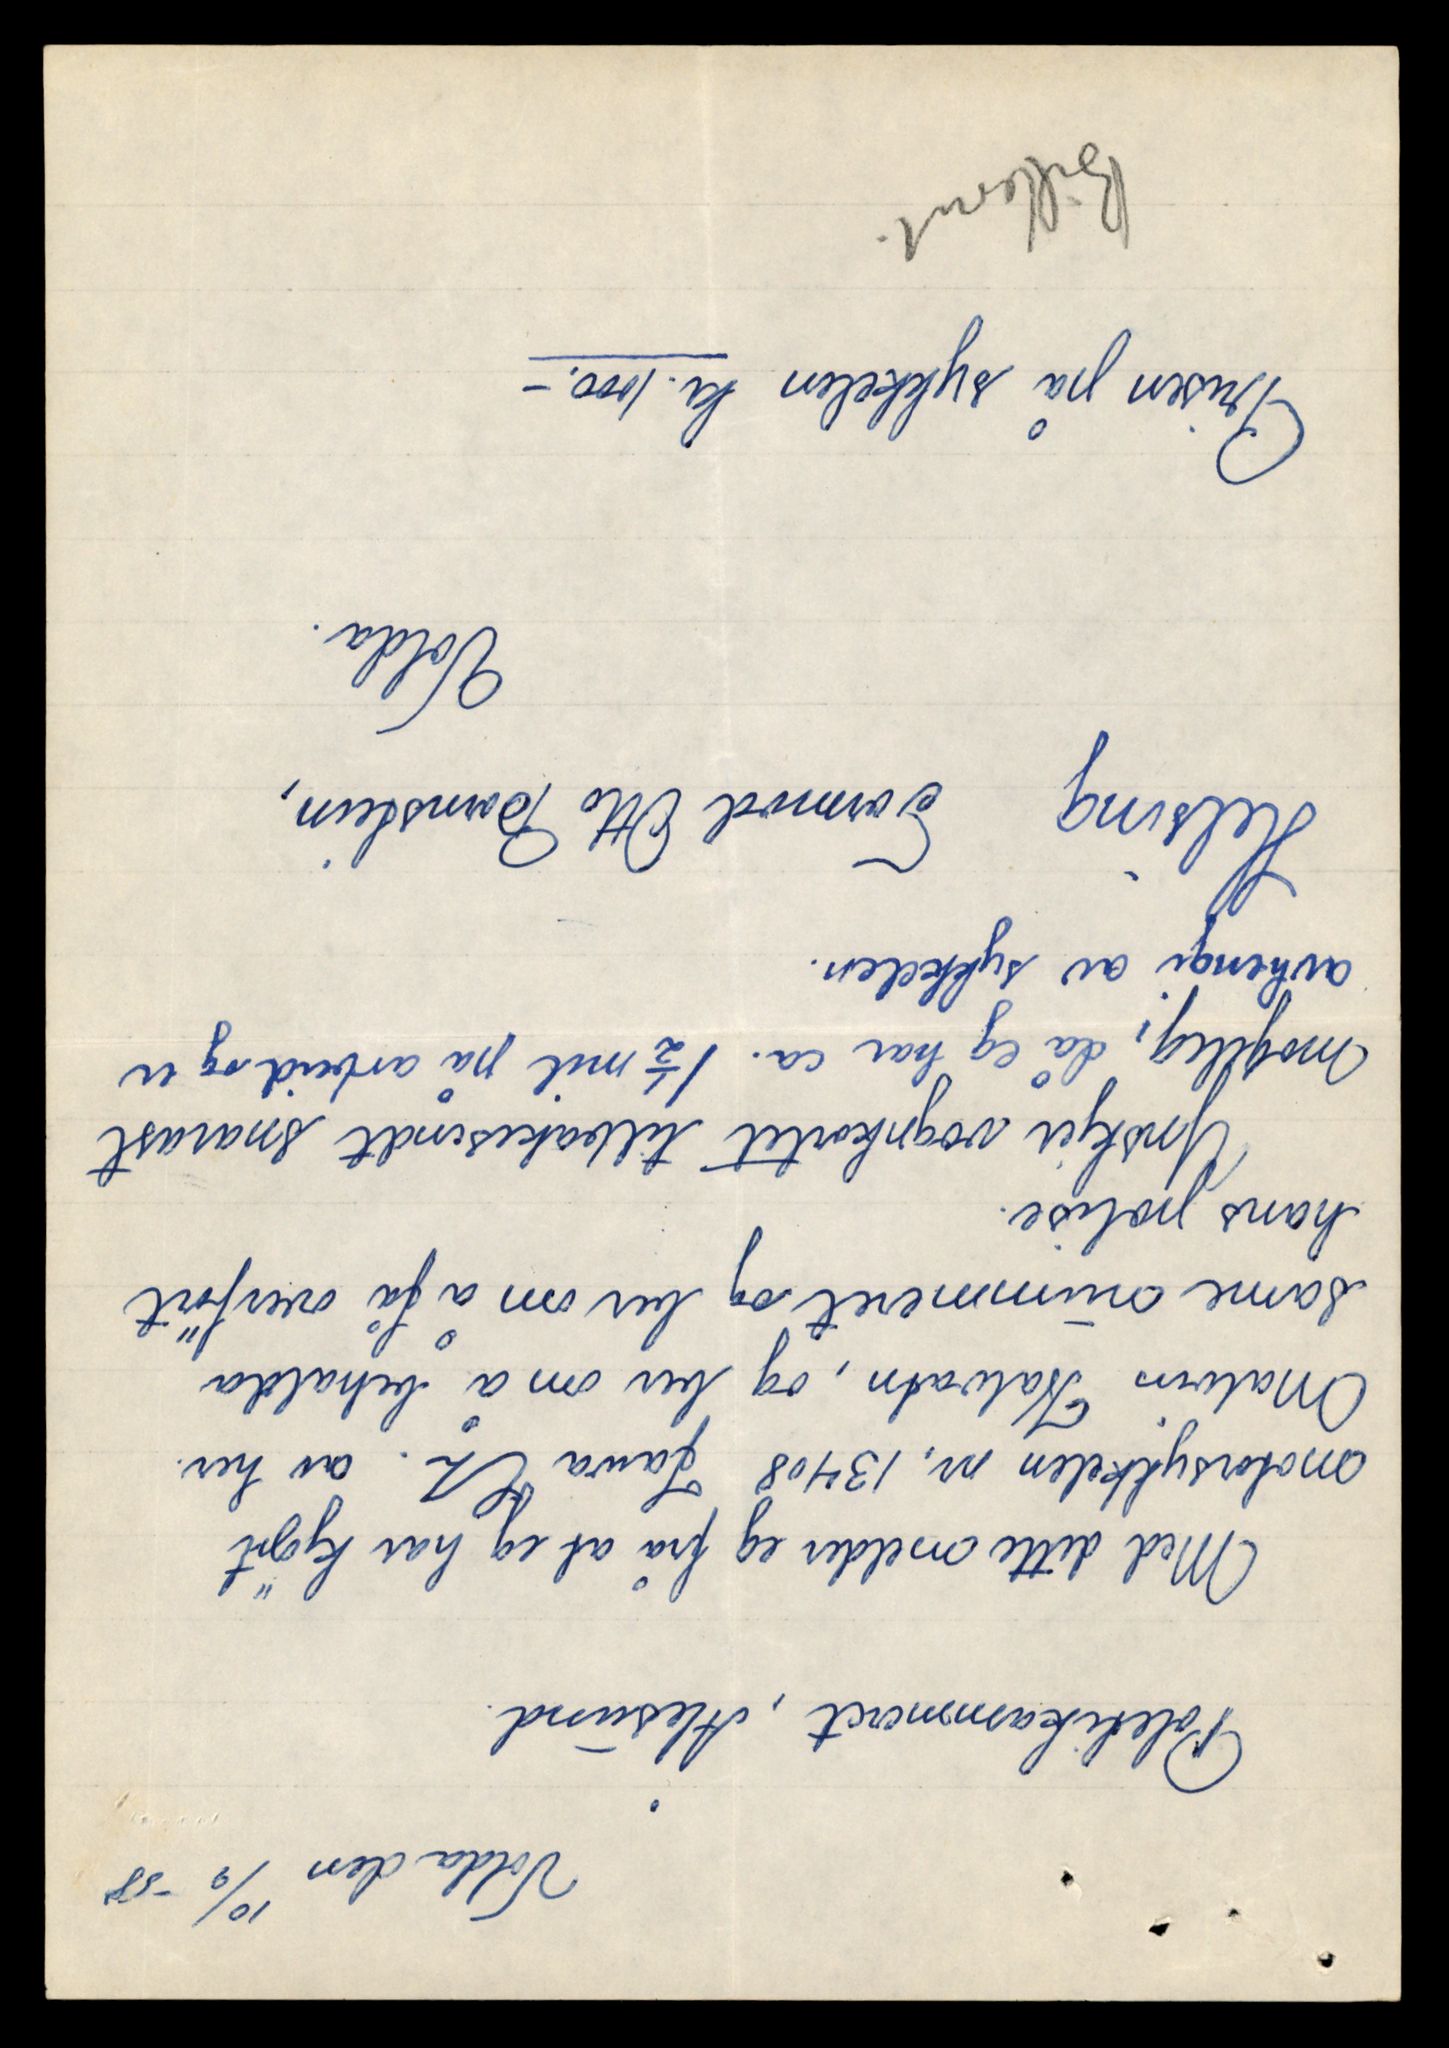 Volda den 10/9 -58
Politikammeret, Ålesund.
Med dette melder eg frå at eg har kjøpt
motorsykkelen nr. 13408 Jawa av hr.
Malvin Kalvatn, og ber om å behalda
same nummeret og ber om å få överfört
hans polise.
Ynskjer vognkortet tilbakesendt snarast
mogeleg, då eg har ca. 1 1/2 mil på arbeid og er
avhengi av sykkelen.
Helsing Tormod Otto
Volda.
Prisen på sykkelen kr. 1000.-